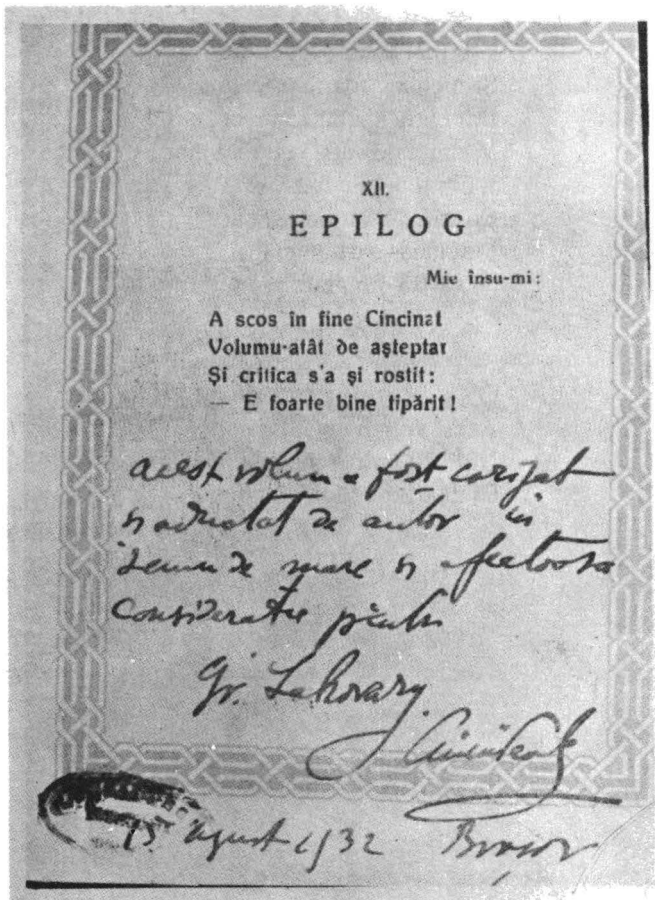 XII.
EPILOG
Mie însu-mi:
A scos în fine Cincinat
Volumu-atât de așteptat
Și critica s'a și rostit:
— E foarte bine tipărit!
acest volum a fost corijat
și adnotat de autor in
semn de mare si afectuoasa
consideratie
Gr. Lahovary
15 August 1932 Brașov